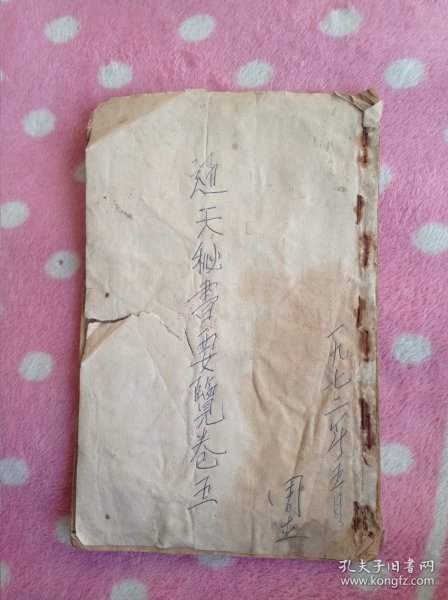 一九七二年五月
通天秘書要覽卷五
周立
孔夫子旧书网
www.kongfz.com